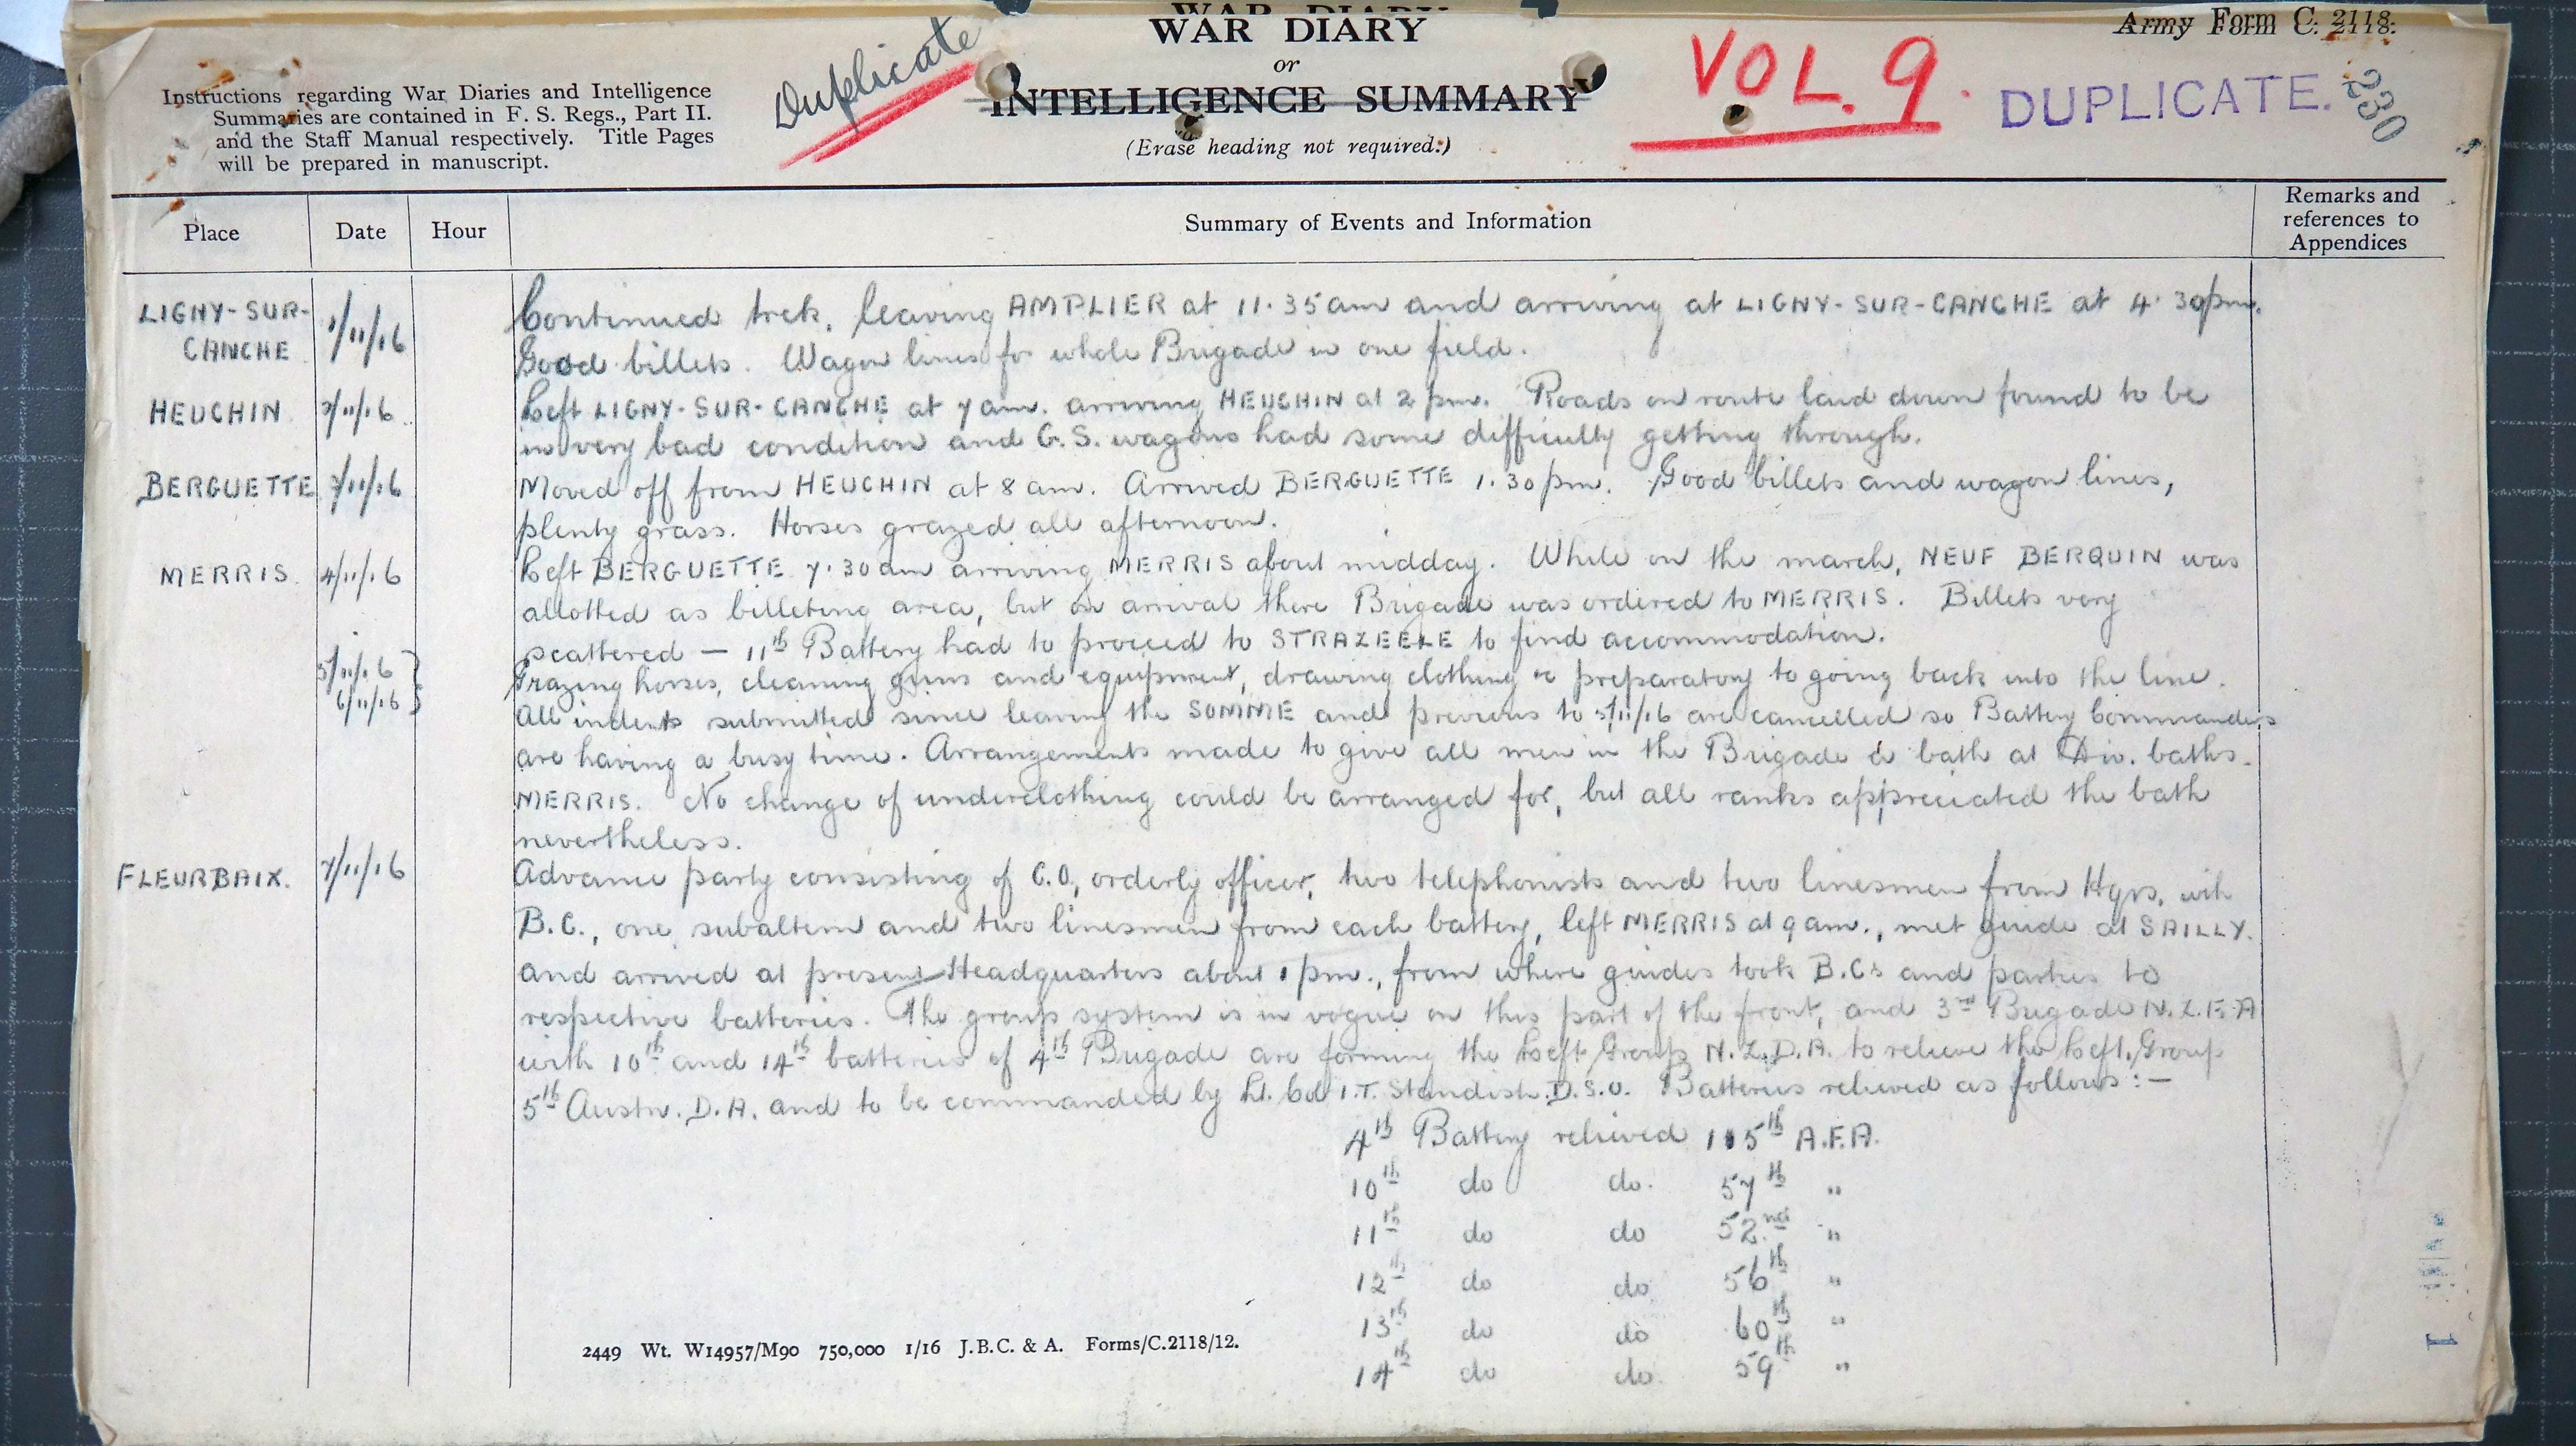 WAR DIARY
Army Form C. 2118.
WAR DIARY
or
INTELLIGENCE SUMMARY
(Erase heading not required.)
Duplicate
VOL. 9.
DUPLICATE.
230
Instructions regarding War Diaries and Intelligence
Summaries are contained in F. S. Regs., Part II.
and the Staff Manual respectively. Title Pages
will be prepared in manuscript.
Place Date Hour Summary of Events and Information Remarks and references to Appendices
LIGNY-SUR-CANCHE 1/11/16 Continued trek, leaving AMPLIER at 11.35am and arriving at LIGNY-SUR-CANCHE at 4.30pm.
Good billets. Wagon lines for whole Brigade in one field.
HEUCHIN 2/11/16 Left LIGNY-SUR-CANCHE at 7am. arriving HEUCHIN at 2pm. Roads on route laid down found to be
in very bad condition and G.S. wagons had some difficulty getting through.
BERGUETTE 3/11/16 Moved off from HEUCHIN at 8am. Arrived BERGUETTE 1.30pm. Good billets and wagon lines,
plenty grass. Horses grazed all afternoon.
MERRIS 4/11/16 Left BERGUETTE 7.30am arriving MERRIS about midday. While on the march, NEUF BERQUIN was
allotted as billeting area, but on arrival there Brigade was ordered to MERRIS. Billets very
scattered — 11th Battery had to proceed to STRAZEELE to find accommodation.
5/11/16 Grazing horses, cleaning guns and equipment, drawing clothing &c preparatory to going back into the line.
6/11/16 All indents submitted since leaving the SOMME and previous to 5/11/16 are cancelled so Battery Commanders
are having a busy time. Arrangements made to give all men in the Brigade a bath at Div. baths.
MERRIS. No change of underclothing could be arranged for, but all ranks appreciated the bath
nevertheless.
FLEURBAIX. 7/11/16 Advance party consisting of C.O, orderly officer, two telephonists and two linesmen from Hqrs, with
B.C., one subaltern and two linesmen from each battery, left MERRIS at 9am., met guide at SAILLY.
and arrived at present Headquarters about 1pm., from where guides took B.Cs and parties to
respective batteries. The group system is in vogue on this part of the front, and 3rd Brigade N.Z.F.A
with 10th and 14th batteries of 4th Brigade are forming the Left Group N.Z.D.A. to relieve the Left Group
5th Austn. D.A. and to be commanded by Lt. Col I.T. Standish. D.S.O. Batteries relieved as follows:—
4th Battery relieved 115th A.F.A.
10th do do. 57th "
11th do do 52nd "
12th do do 56th "
13th do do 60th "
14th do do. 59th "
2449 Wt. W14957/M90 750,000 1/16 J.B.C. & A. Forms/C.2118/12.